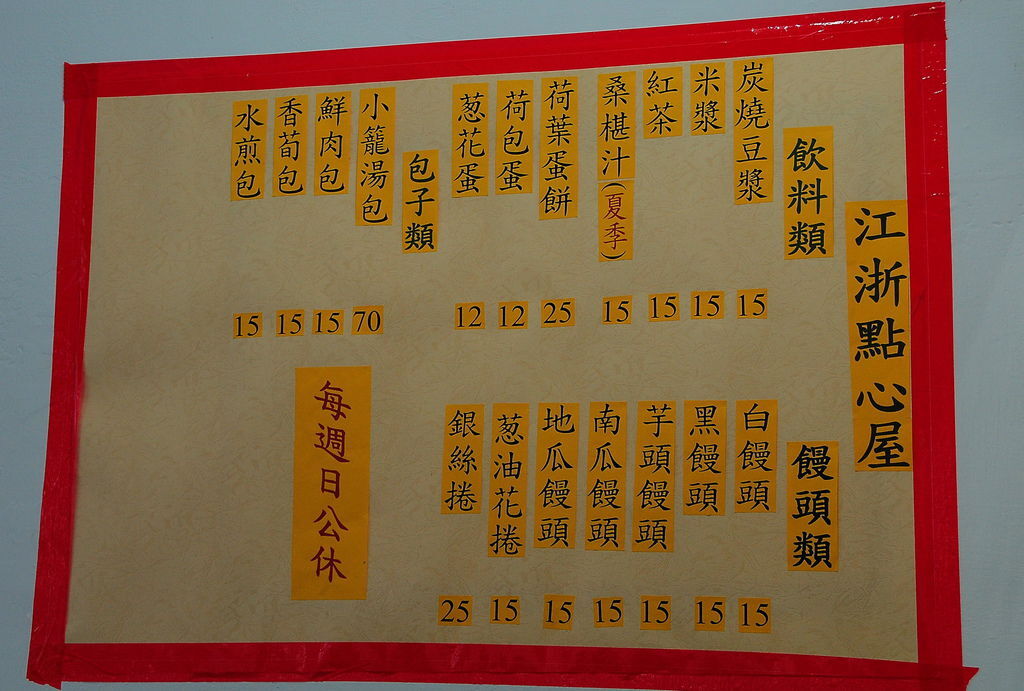 江浙點心屋
飲料類
炭燒豆漿 15
米漿 15
紅茶 15
桑椹汁(夏季) 15
荷葉蛋餅 25
荷包蛋 12
葱花蛋 12
包子類
小籠湯包 70
鮮肉包 15
香荀包 15
水煎包 15
饅頭類
白饅頭 15
黑饅頭 15
芋頭饅頭 15
南瓜饅頭 15
地瓜饅頭 15
葱油花捲 15
銀絲捲 25
每週日公休